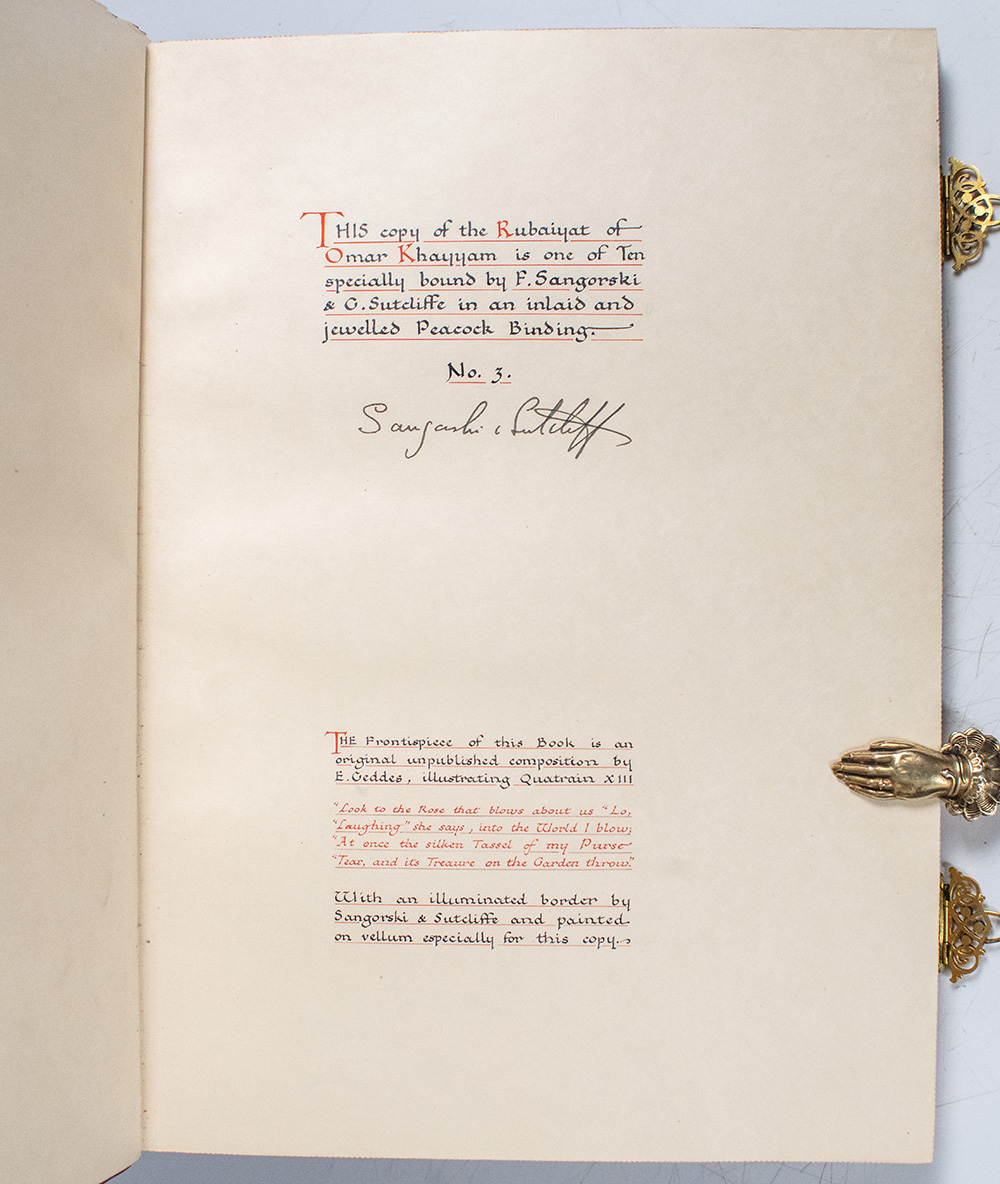 THIS copy of the Rubaiyat of
Omar Khayyam is one of Ten
specially bound by F. Sangorski
& G. Sutcliffe in an inlaid and
jewelled Peacock Binding.
No. 3.
Sangorski & Sutcliffe
THE Frontispiece of this Book is an
original unpublished composition by
E. Geddes, illustrating Quatrain XIII
"Look to the Rose that blows about us "Lo,
"Laughing" she says, into the World I blow;
"At once the silken Tassel of my Purse
"Tear, and its Treaure on the Garden throw."
With an illuminated border by
Sangorski & Sutcliffe and painted
on vellum especially for this copy.